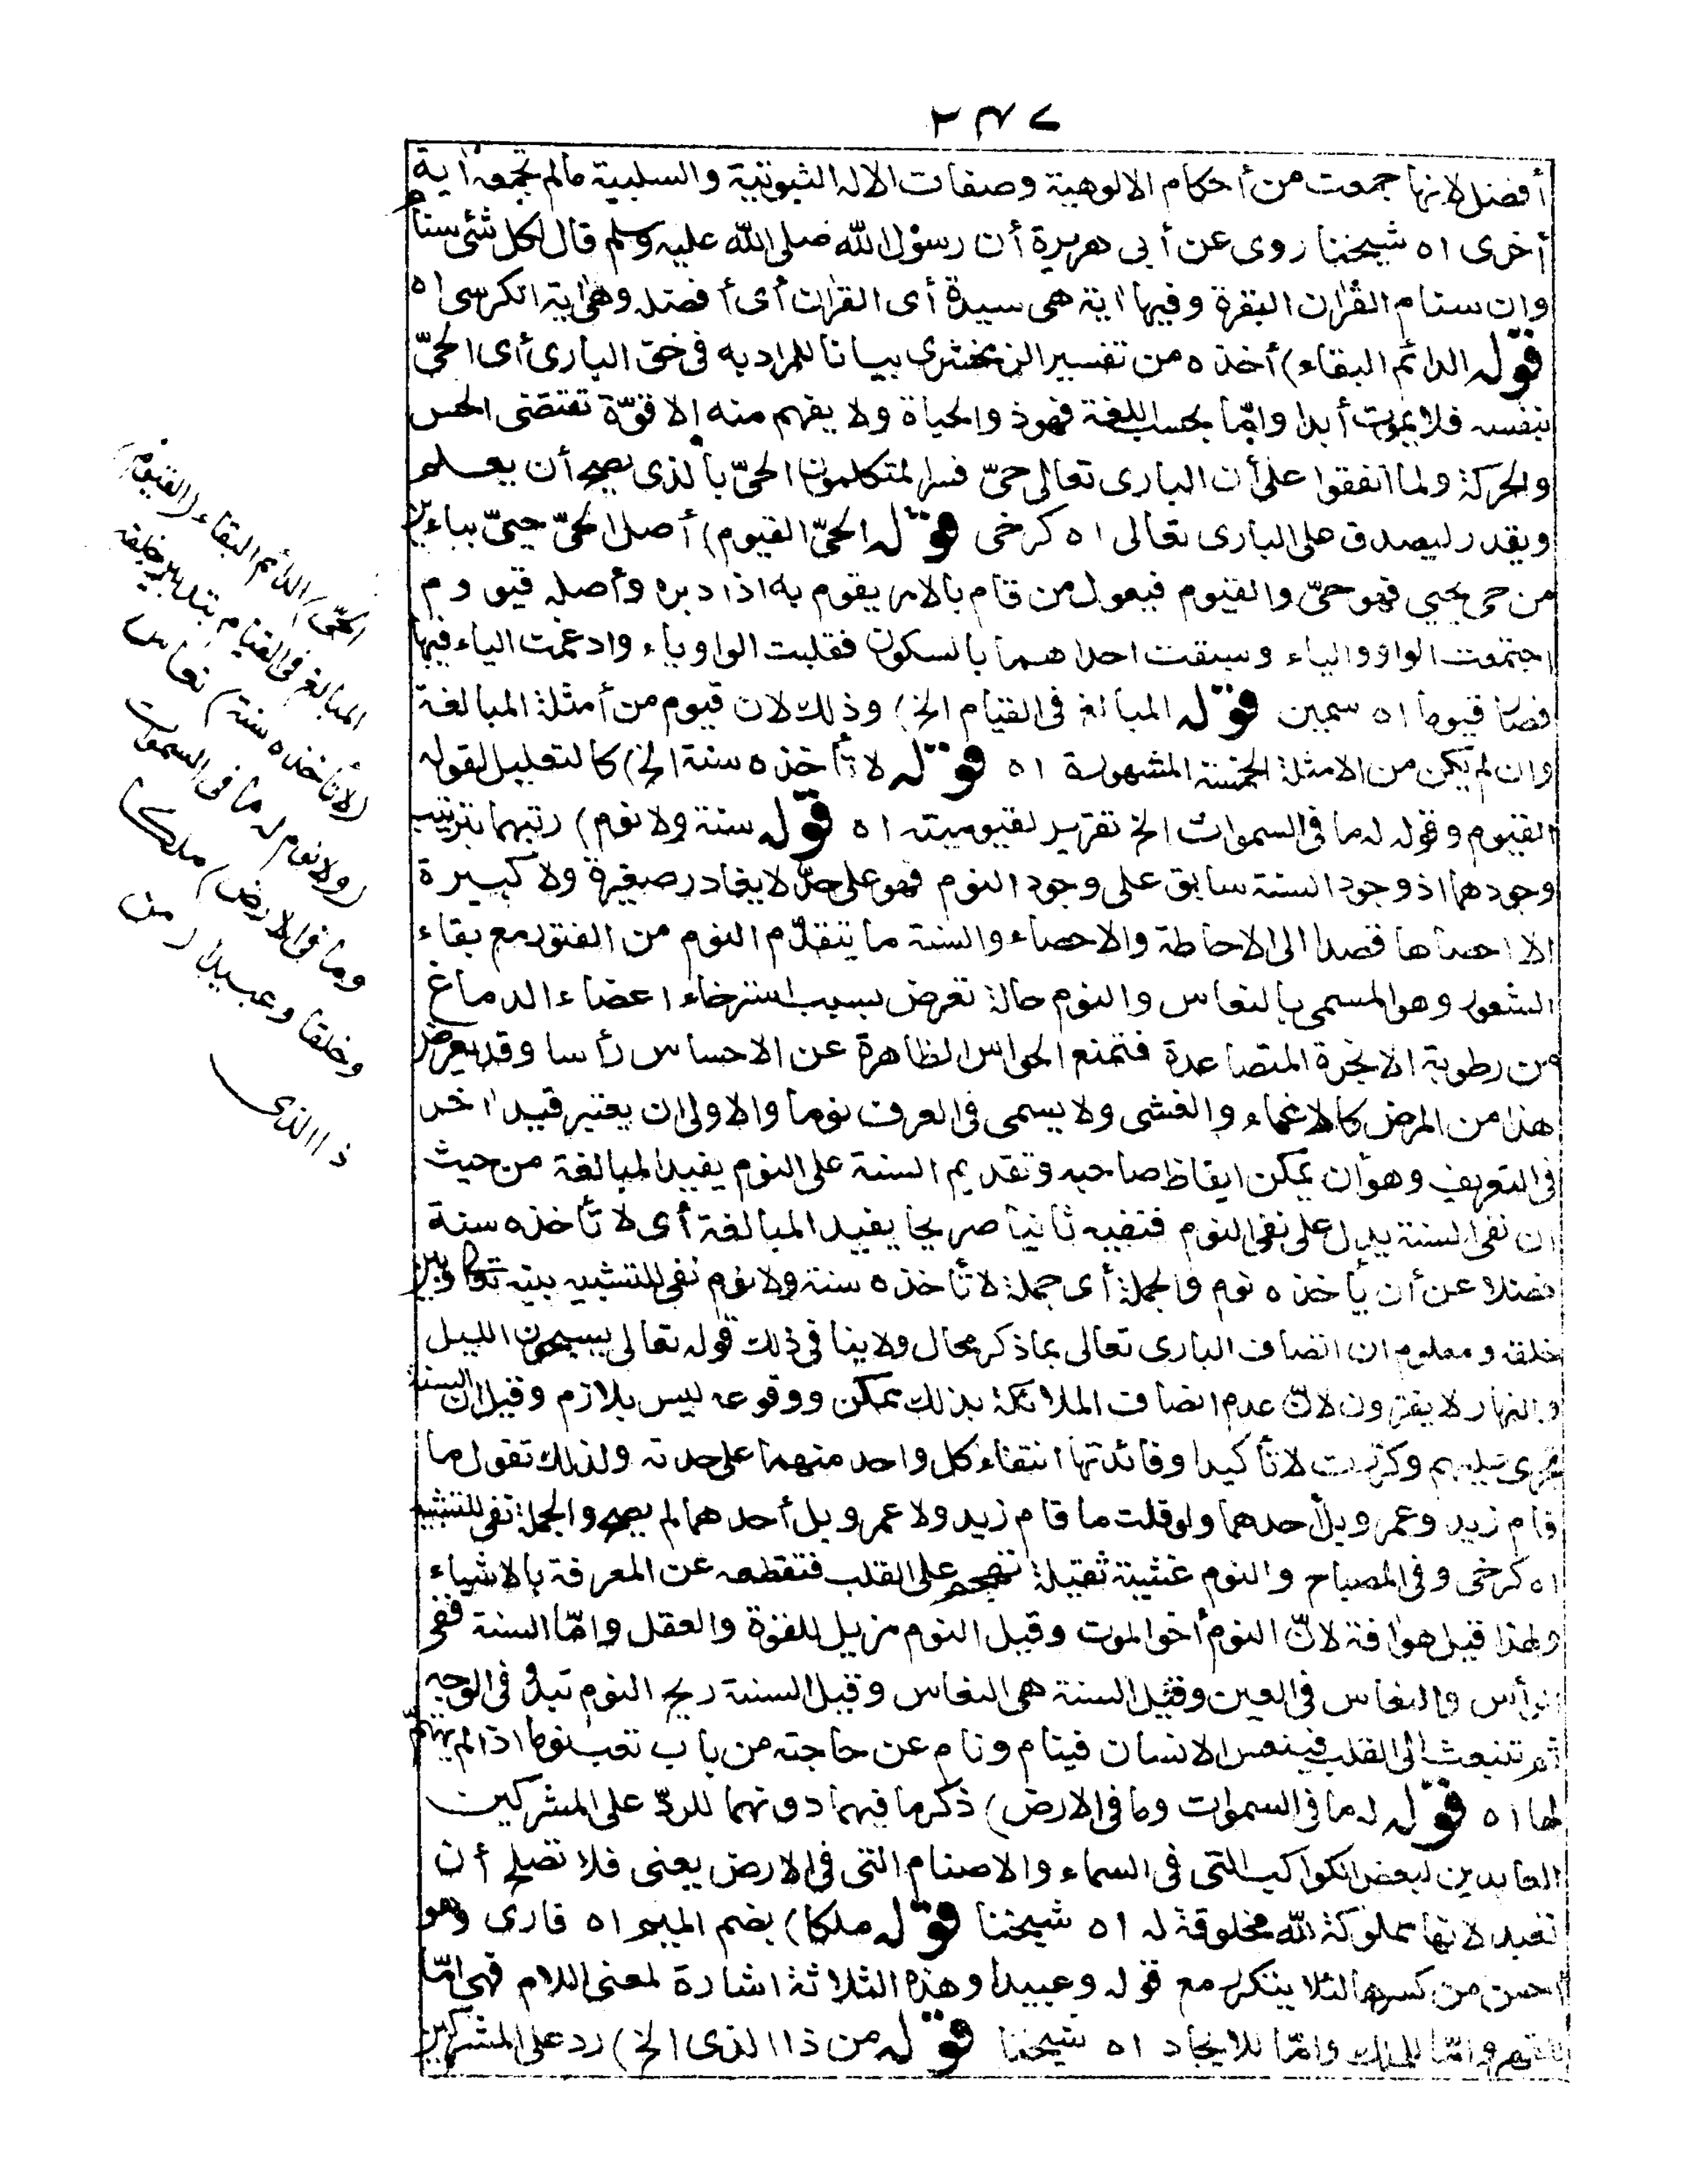 ٢٣٧
أفضل لانها جمعت من أحكام الالوهية وصفات الاله الثبوتية والسلبية مالم تجمعه اٰية
أخرى اه شيخنا روى عن أبى هريرة أن رسول الله صلى الله عليه وسلم قال لكل شئ سنام
وان سنام القراٰن البقرة وفيها اٰية هى سيدة أى القراٰن أى أفضله وهى اٰية الكرسى اه
قوله الدائم البقاء) أخذه من تفسير الزمخشرى بيانا للمراد به فى حق البارى أى الحىّ
بنفسه فلا يموت أبدا وامّا بحسب اللغة فهو ذو الحياة ولا يفهم منه الا قوّة تقتضى الحس
والحركة ولما اتفقوا على أن البارى تعالى حىّ فسر المتكلمون الحىّ بالذى يصح أن يعلم
ويقدر ليصدق على البارى تعالى اه كرخى قوله الحىّ القيوم) أصل الحىّ حيىّ بياءين
من حى يحيى فهو حىّ والقيوم فيعول من قام بالامر يقوم به اذا دبره وأصله قيووم
اجتمعت الواو والياء وسبقت احداهما بالسكون فقلبت الواو ياء وادغمت الياء فيها
فصار قيوما اه سمين قوله المبالغ فى القيام الخ) وذلك لان قيوم من أمثلة المبالغة
وان لم يكن من الامثلة الخمسة المشهورة اه قوله لا تأخذه سنة الخ) كالتعليل لقوله
القيوم وقوله له ما فى السموات الخ تقرير لقيوميته اه قوله سنة ولا نوم) رتبهما بترتيب
وجودهما اذ وجود السنة سابق على وجود النوم فهو على حدّ لا يغادر صغيرة ولا كبيرة
الا احصاها قصدا الى الاحاطة والاحصاء والسنة ما يتقدّم النوم من الفتور مع بقاء
الشعور وهو المسمى بالنعاس والنوم حالة تعرض بسبب استرخاء اعضاء الدماغ
من رطوبة الابخرة المتصاعدة فتمنع الحواس الظاهرة عن الاحساس رأسا وقد يعرض
هذا من المرض كالاغماء والغشى ولا يسمى فى العرف نوما والاولى ان يعتبر قيد اٰخر
فى التعريف وهو أن يمكن ايقاظ صاحبه وتقديم السنة على النوم يفيد المبالغة من حيث
ان نفى السنة يدل على نفى النوم فنفيه ثانيا صريحا يفيد المبالغة أى لا تأخذه سنة
فضلا عن أن يأخذه نوم والجملة أى جملة لا تأخذه سنة ولا نوم نفى للتشبيه بينه تعالى وبين
خلقه ومعلوم ان اتصاف البارى تعالى بما ذكر محال ولا ينافى ذلك قوله تعالى يسبحون الليل
والنهار لا يفترون لانّ عدم اتصاف الملائكة بذلك ممكن ووقوعه ليس بلازم وقيل ان السنة
تجرى عليهم وكررت لا تأكيدا وفائدتها انتفاء كل واحد منهما على حدته ولذلك تقول ما
قام زيد وعمرو بل أحدهما ولو قلت ما قام زيد ولا عمرو بل أحدهما لم يصح والجملة نفى للتشبيه
اه كرخى وفى المصباح والنوم غشية ثقيلة تهجم على القلب فتقطعه عن المعرفة بالاشياء
ولهذا قيل هو اٰفة لانّ النوم أخو الموت وقيل النوم مزيل للقوة والعقل وامّا السنة ففى
الرأس والنعاس فى العين وقيل السنة هى النعاس وقيل السنة ريح النوم تبدو فى الوجه
ثم تنبعث الى القلب فينعس الانسان فينام ونام عن حاجته من باب تعب نوما اذا لم يهتمّ
لها اه قوله له ما فى السموات وما فى الارض) ذكر ما فيهما دونهما للردّ على المشركين
العابدين لبعض الكواكب التى فى السماء والاصنام التى فى الارض يعنى فلا تصلح أن
تعبد لانها مملوكة لله مخلوقة له اه شيخنا قوله ملكا) بضم الميم اه قارى وهو
احسن من كسرها لئلا يتكرر مع قوله وعبيدا وهذه الثلاثة اشارة لمعنى اللام فهى امّا
للقهر وامّا للملك وامّا للايجاد اه شيخنا قوله من ذا الذى الخ) رد على المشركين
الحىّ) الدائم البقاء (القيوم)
المبالغ فى القيام بتدبير خلقه
(لا تأخذه سنة) نعاس
(ولا نوم له ما فى السموات
وما فى الارض) ملكا
وخلقا وعبيدا (من
ذا الذى